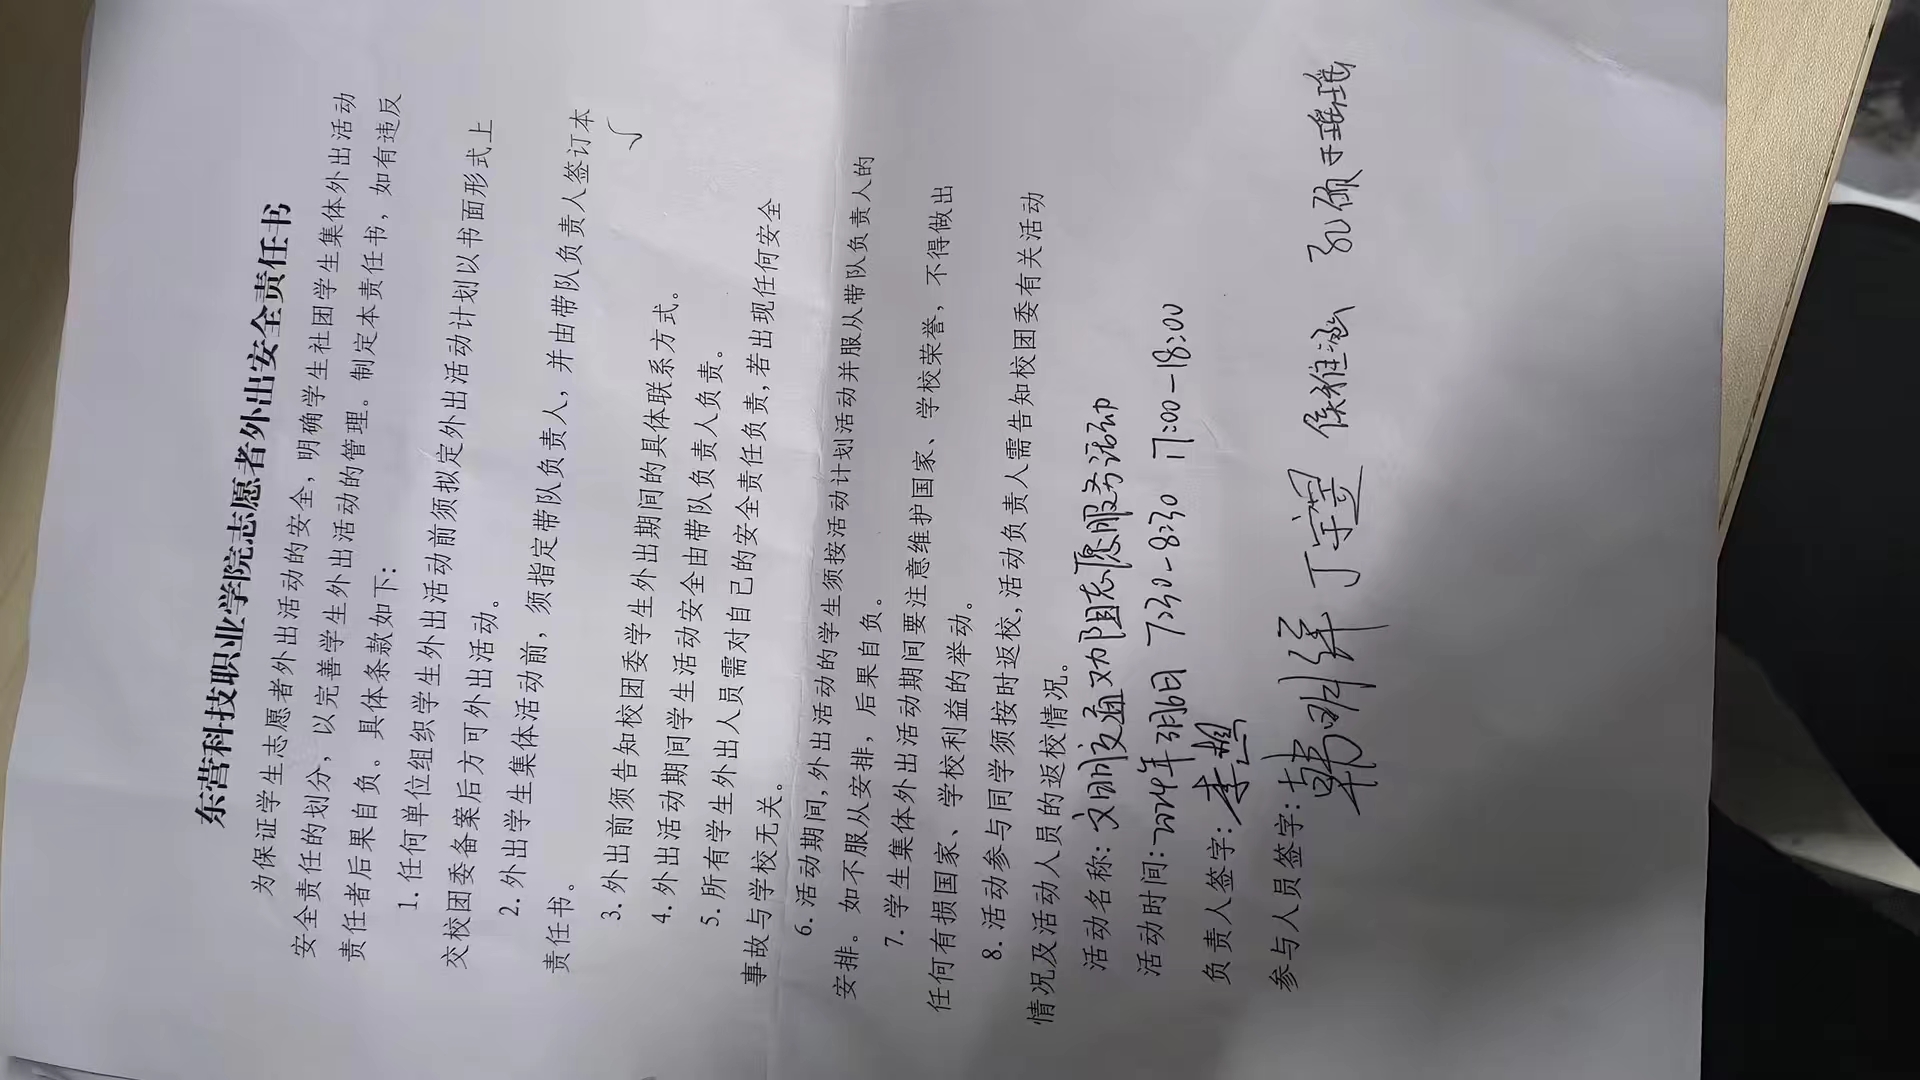 东营科技职业学院志愿者外出安全责任书
为保证学生志愿者外出活动的安全，明确学生社团学生集体外出活动
安全责任的划分，以完善学生外出活动的管理。制定本责任书，如有违反
责任者后果自负。具体条款如下：
1. 任何单位组织学生外出活动前须拟定外出活动计划以书面形式上
交校团委备案后方可外出活动。
2. 外出学生集体活动前，须指定带队负责人，并由带队负责人签订本
责任书。
√
3. 外出前须告知校团委学生外出期间的具体联系方式。
4. 外出活动期间学生活动安全由带队负责人负责。
5. 所有学生外出人员需对自己的安全责任负责,若出现任何安全
事故与学校无关。
6. 活动期间,外出活动的学生须按活动计划活动并服从带队负责人的
安排。如不服从安排，后果自负。
7. 学生集体外出活动期间要注意维护国家、学校荣誉，不得做出
任何有损国家、学校利益的举动。
8. 活动参与同学须按时返校,活动负责人需告知校团委有关活动
情况及活动人员的返校情况。
活动名称: 文明交通劝阻志愿服务活动
活动时间: 2024年3月6日 7:30-8:30 17:00-18:00
负责人签字: 李
参与人员签字: 韩明洋 丁宇昱 侯雅涵 孔硕 于